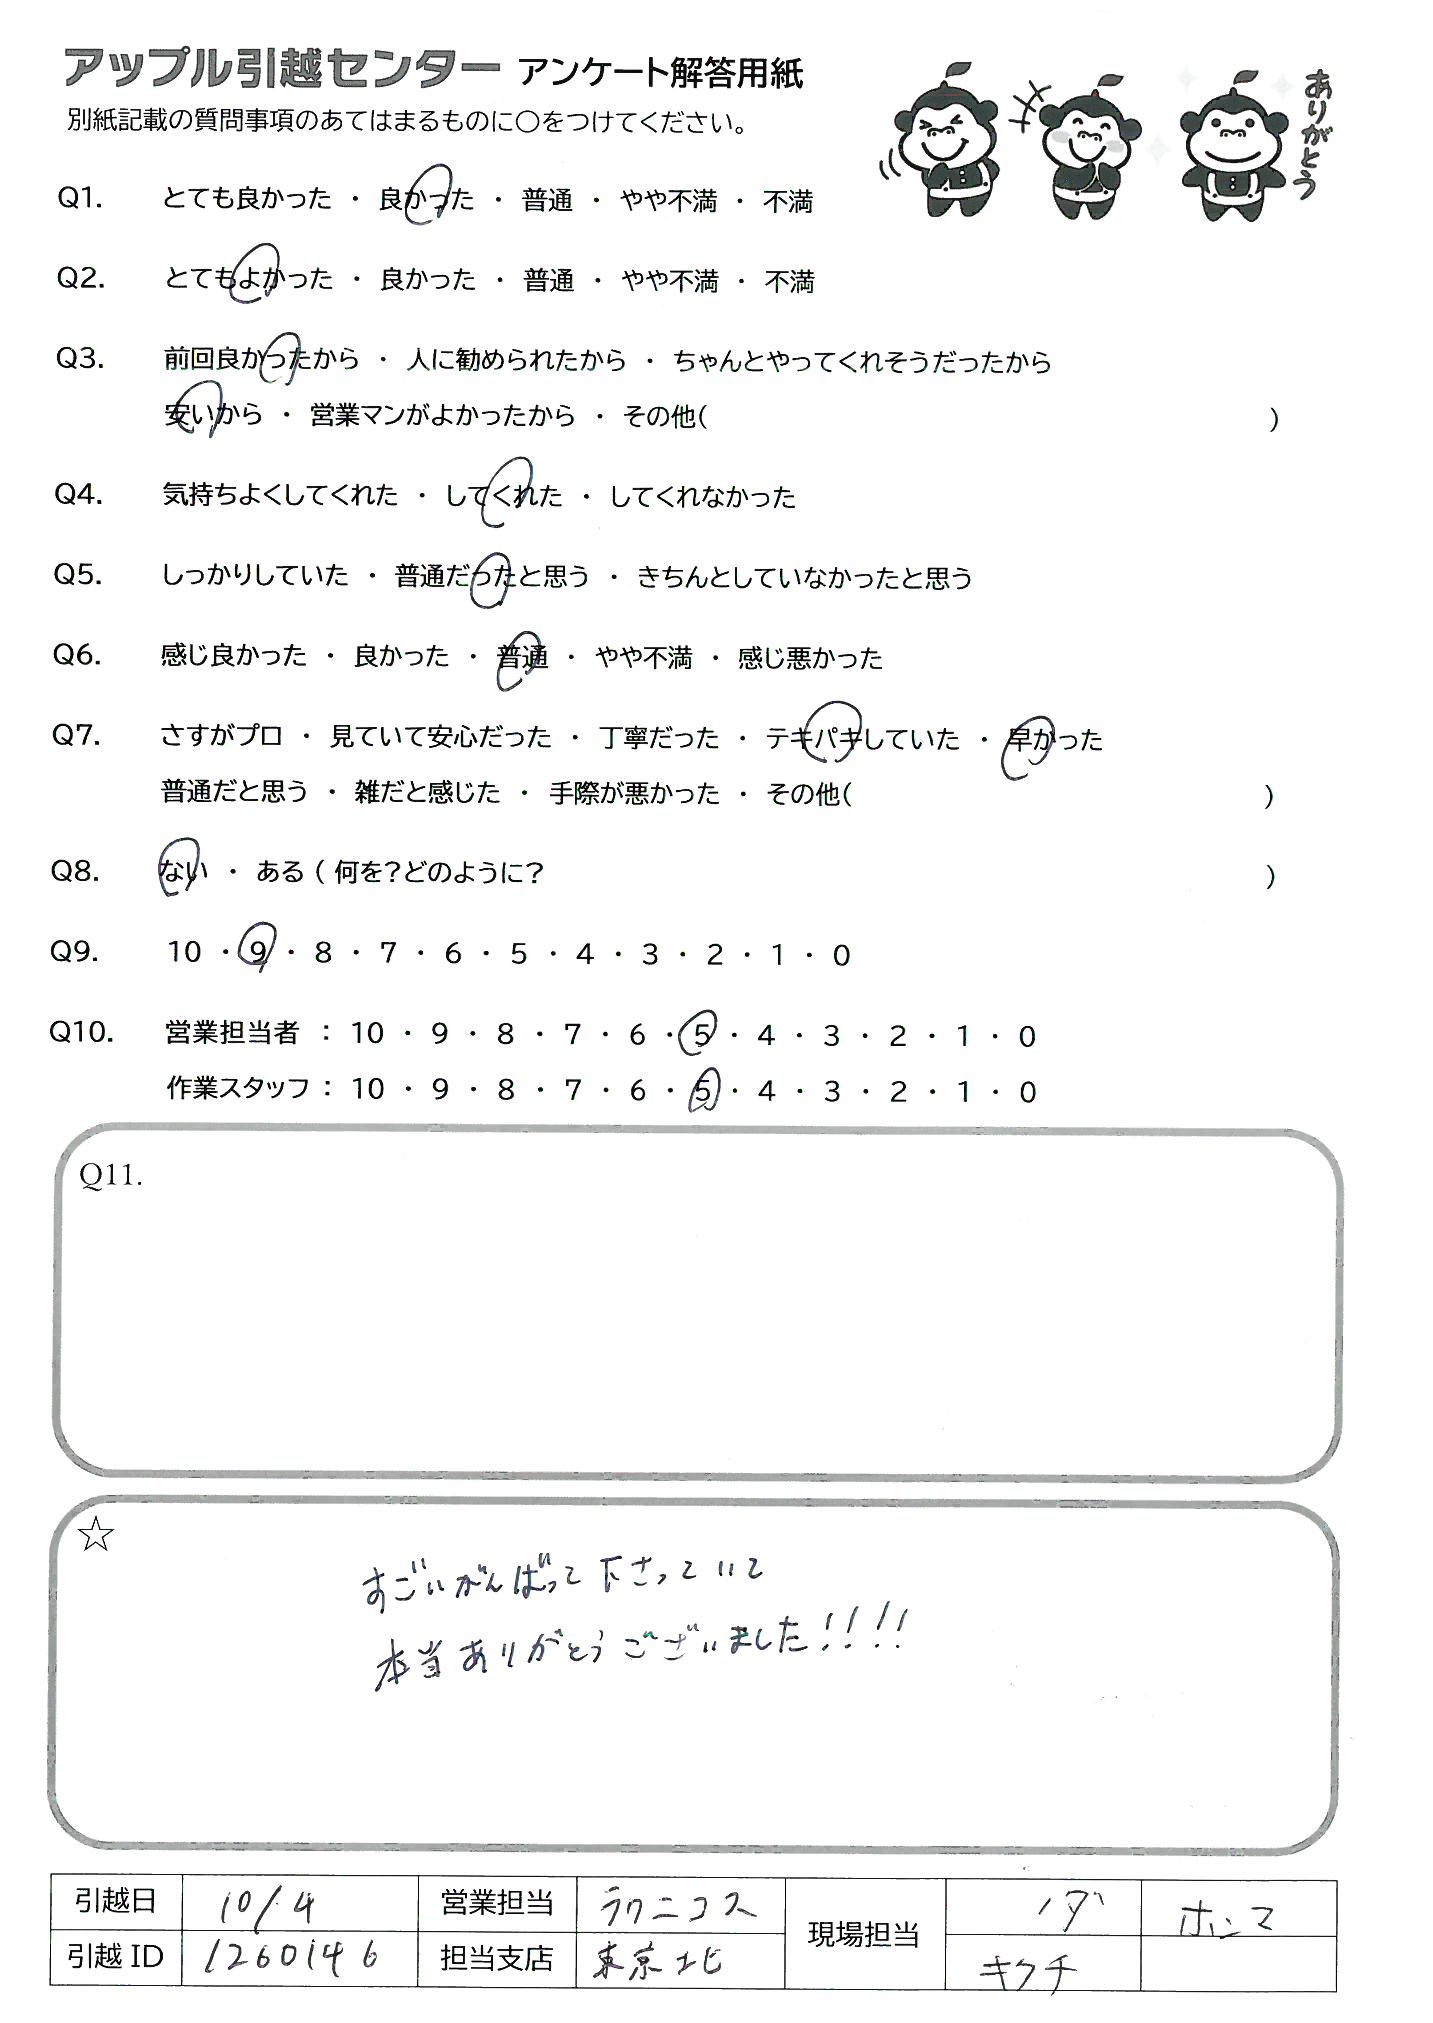 アップル引越センター アンケート解答用紙
ありがとう
別紙記載の質問事項のあてはまるものに○をつけてください。
Q1. とても良かった ・ 良かった ・ 普通 ・ やや不満 ・ 不満
Q2. とてもよかった ・ 良かった ・ 普通 ・ やや不満 ・ 不満
Q3. 前回良かったから ・ 人に勧められたから ・ ちゃんとやってくれそうだったから
安いから ・ 営業マンがよかったから ・ その他( )
Q4. 気持ちよくしてくれた ・ してくれた ・ してくれなかった
Q5. しっかりしていた ・ 普通だったと思う ・ きちんとしていなかったと思う
Q6. 感じ良かった ・ 良かった ・ 普通 ・ やや不満 ・ 感じ悪かった
Q7. さすがプロ ・ 見ていて安心だった ・ 丁寧だった ・ テキパキしていた ・ 早かった
普通だと思う ・ 雑だと感じた ・ 手際が悪かった ・ その他( )
Q8. ない ・ ある ( 何を?どのように? )
Q9. 10 ・ 9 ・ 8 ・ 7 ・ 6 ・ 5 ・ 4 ・ 3 ・ 2 ・ 1 ・ 0
Q10. 営業担当者 : 10 ・ 9 ・ 8 ・ 7 ・ 6 ・ 5 ・ 4 ・ 3 ・ 2 ・ 1 ・ 0
作業スタッフ : 10 ・ 9 ・ 8 ・ 7 ・ 6 ・ 5 ・ 4 ・ 3 ・ 2 ・ 1 ・ 0
Q11.
☆
すごいがんばって下さっていて
本当ありがとうございました!!!!
引越日 10/4 営業担当 ラクニコス 現場担当 ノダ ホンマ
引越ID 1260146 担当支店 東京北 キクチ